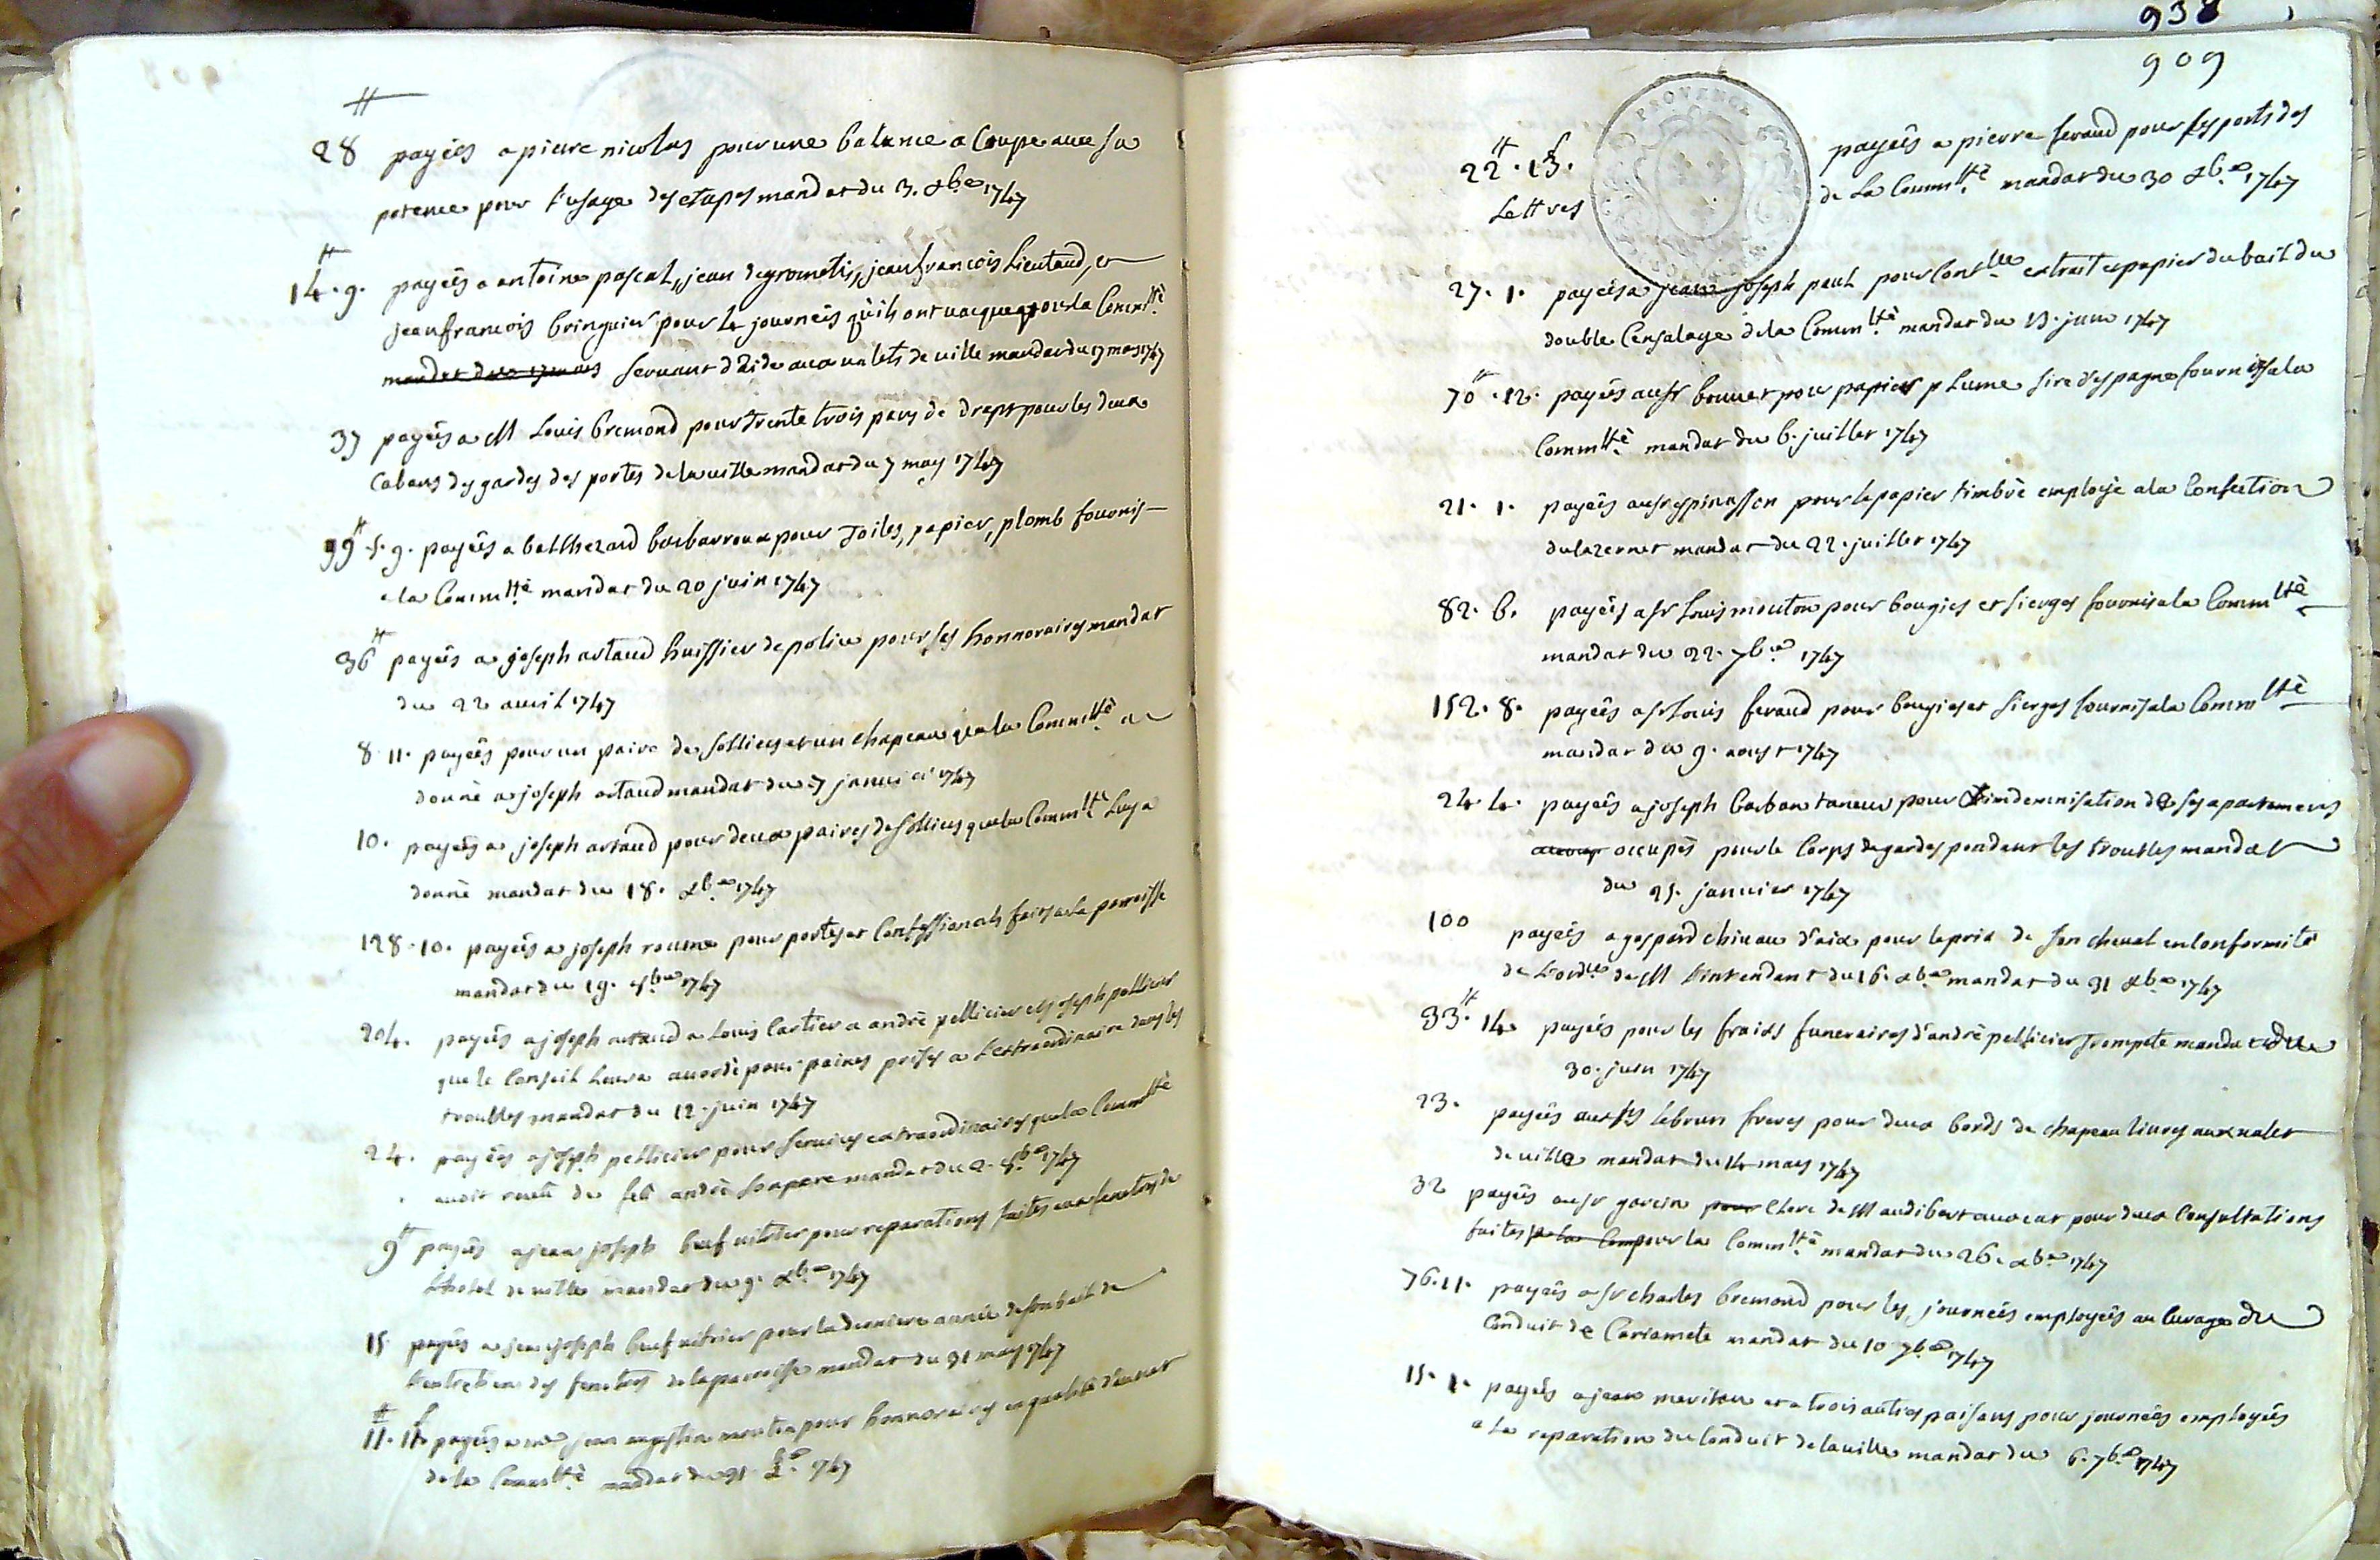 #
28 payées a pierre nicolas pour une balance a Coupe avec sa
potence pour l'usage des etapes mandat du 3. xbre 1747
#
14. 9. payées a antoine pascal, jean degrometis, jean francois Lieutaud, et
jean francois bringuier pour 4 journeés qu'ils ont vacque pour la Commtté
mandat du 17 mars servant d'aide aux valets de ville mandat du 17 mars 1747
37 payées a M Louis bremond pour trente trois pans de drap pour les deux
Cabans des gardes des portes de la ville mandat du 7 may 1747
#
99. 5. 9. payées a balthezard barbarroux pour Toiles, papier, plomb fournis
a la Commtté mandat du 20 juin 1747
#
36 payées a joseph artaud huissier de police pour ses honnoraires mandat
du 22 avril 1747
8. 11. payées pour un paire de solliers et un chapeau que la Commtté a
donné a joseph artaud mandat du 7 janvier 1747
10. payées a joseph artaud pour deux paires de solliers que la Commtté luy a
donné mandat du 18. xbre 1747
128. 10. payées a joseph roume pour portes et Confessionals faits a la parroisse
mandat du 19. 8bre 1747
204. payées a joseph artaud a Louis Cartier a andré pellicier et joseph pellicier
que le Conseil leur a accordé pour peines prises a l'extraordinaire dans les
troubles mandat du 12. juin 1747
24. payées a joseph pellicier pour services extraordinaires que la Commtté
avoit reçeu de feu andré son pere mandat du 2. 8bre 1747
#
9 payées a jean joseph beuf vitrier pour reparations faites aux fenetres de
L'hotel de ville mandat du 9. xbre 1747
15 payées a jean joseph beuf vitrier pour la derniere année de son bail de
l'entretien des fenetres de la parroisse mandat du 31 may 1747
# s
11. 11. payées a me jean augustin mouton pour honnoraires en qualité d'avocat
de la Commtté mandat du 31. xbre 1747
938
909
# s
22. 13. payées a pierre feraud pour les ports des
Lettres de la Commtté mandat du 30 xbre 1747
PROVENCE
27. 1. payées a jean joseph paul pour Contlle extrait et papier du bail du
double Censalage de la Commtté mandat du 13. juin 1747
#
70. 12. payées au sr bonnet pour papier plume sire d'espagne fournis a la
Commtté mandat du 6. juillet 1747
21. 1. payées au sr espinasson pour le papier timbré employé a la Confection
du lazernet mandat du 22. juillet 1747
82. 6. payées a sr Louis mouton pour bougies et sierges fournis a la Commtté
mandat du 22. 7bre 1747
152. 8. payées a sr Louis feraud pour bougies et sierges fournis a la Commtté
mandat du 9. aoust 1747
24. 4. payées a joseph barban taneur pour l'imdemnisation de ses apartemens
occupés pour le Corps de gardes pendant les troubles mandat
du 25. janvier 1747
100 payées a gaspard chivau d'aix pour le prix de son cheval en Conformité
de L'ordce de M L'intendant du 16. xbre mandat du 31 xbre 1747
#
33. 14 payées pour les fraids funeraires d'andré pellicier Trompete mandat du
30. juin 1747
23. payées aux srs lebrun freres pour deux bords de chapeau livres aux valet
de ville mandat du 14 mars 1747
32 payées au sr garcin pour Clerc de M audibert avocat pour deux Consultations
faites pour la Commtté mandat du 26. xbre 1747
76. 11. payées a sr charles bremond pour les journeés employeés au Curage du
Conduit de Cariamete mandat du 10 7bre 1747
15. 1. payées a jean meriton et a trois autres paisans pour journeés employeés
a la reparation du Conduit de la ville mandat du 6. 7bre 1747